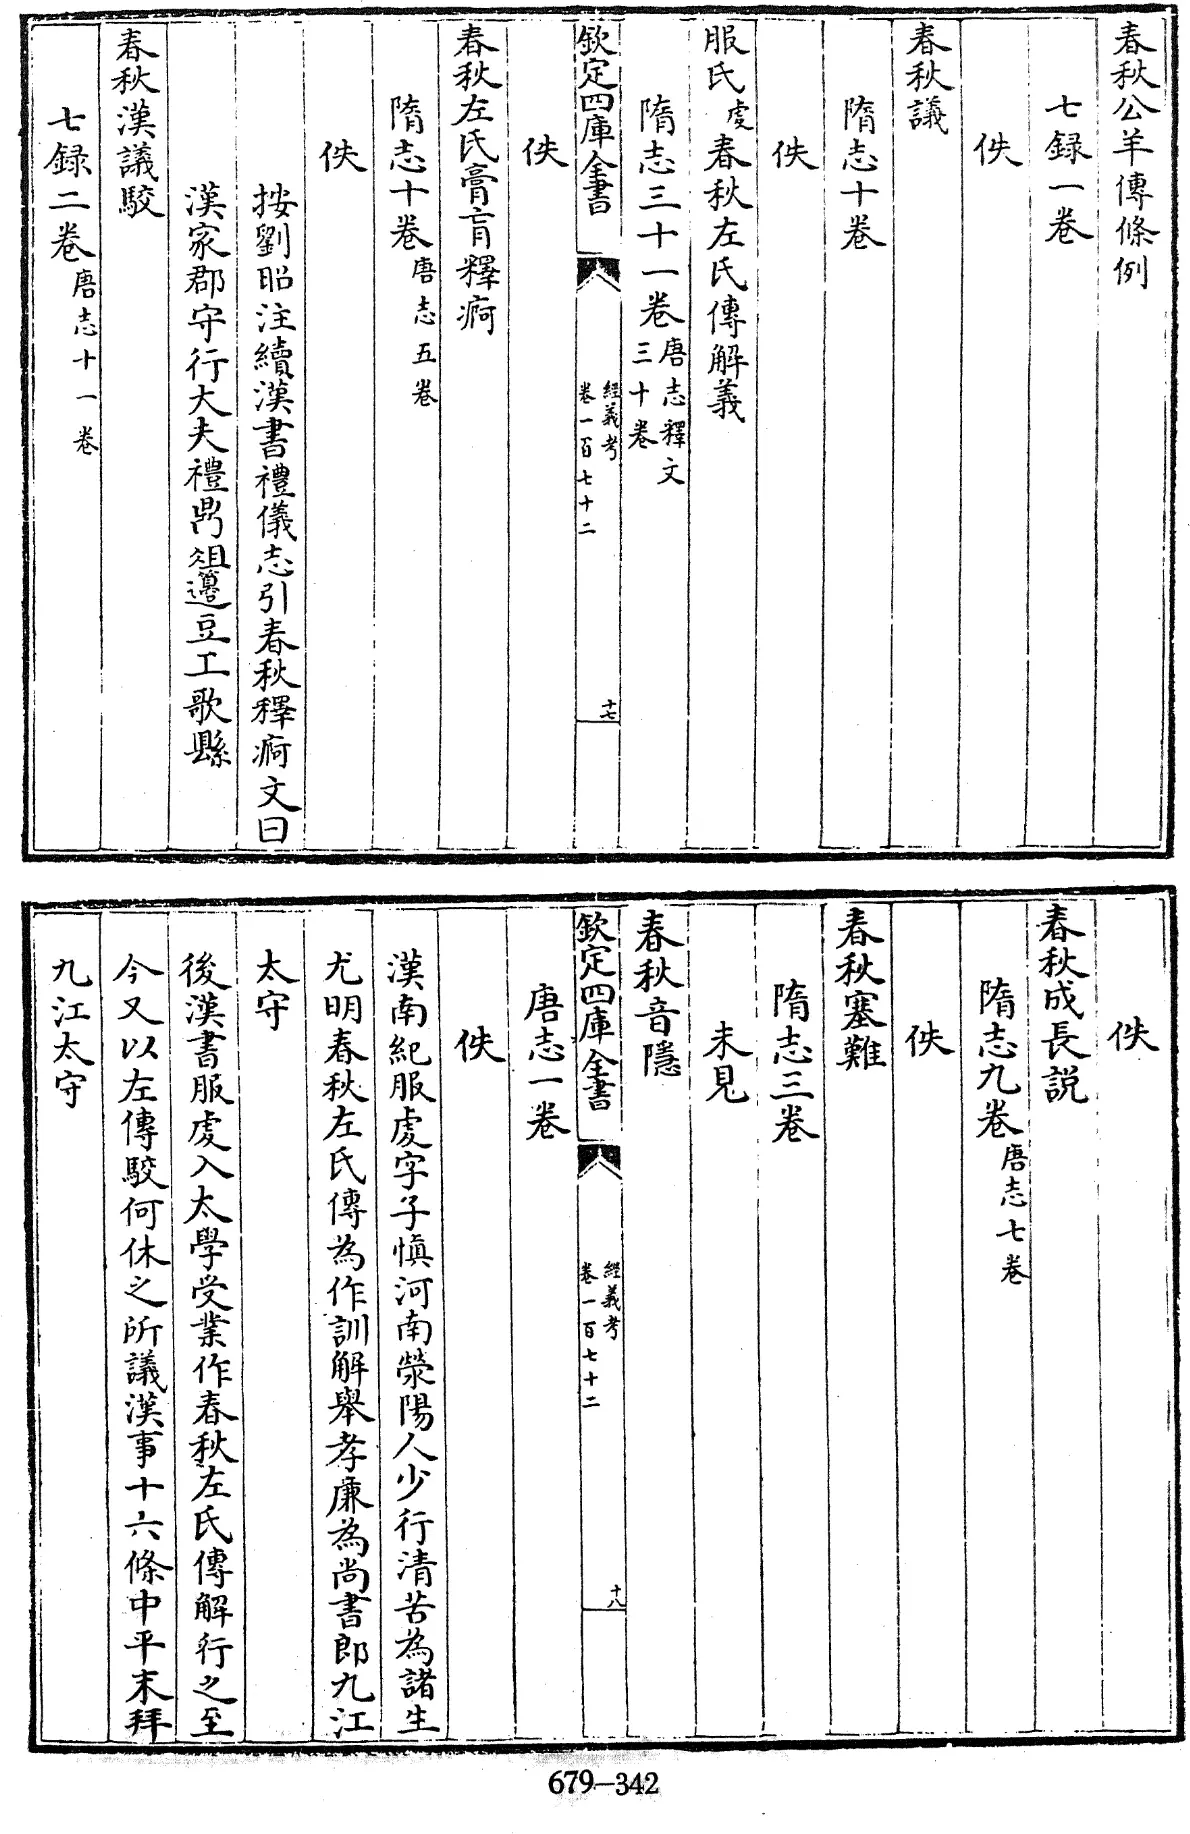 春秋公羊傳條例
七録一卷
佚
春秋議
隋志十卷
佚
服氏虔春秋左氏傳解義
隋志三十一卷唐志釋文三十卷
欽定四庫全書 經義考卷一百七十二 十七
佚
春秋左氏膏肓釋痾
隋志十卷唐志五卷
佚
按劉昭注續漢書禮儀志引春秋釋痾文曰
漢家郡守行大夫禮鼎俎籩豆工歌縣
春秋漢議駮
七録二卷唐志十一卷
佚
春秋成長説
隋志九卷唐志七卷
佚
春秋塞難
隋志三卷
未見
春秋音隱
欽定四庫全書 經義考卷一百七十二 十八
唐志一卷
佚
漢南紀服虔字子慎河南滎陽人少行清苦為諸生
尤明春秋左氏傳為作訓解舉孝廉為尚書郎九江
太守
後漢書服虔入太學受業作春秋左氏傳解行之至
今又以左傳駮何休之所議漢事十六條中平末拜
九江太守
679-342